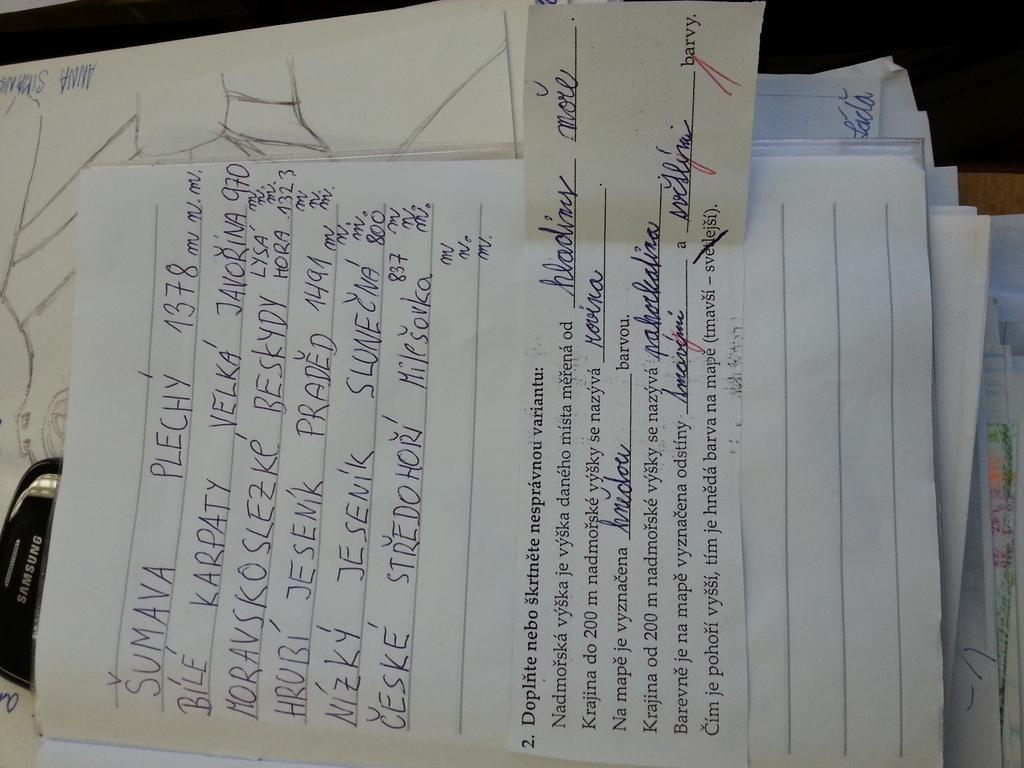 ANNA
SAMSUNG
ŠUMAVA PLECHÝ 1378 m n. m.
BÍLÉ KARPATY VELKÁ JAVOŘINA 970 m n. m.
MORAVSKOSLEZKÉ BESKYDY LYSÁ HORA 1323 m n. m.
HRUBÍ JESENÍK PRADĚD 1491 m n. m.
NÍZKÝ JESENÍK SLUNEČNÁ 800 m n. m.
ČESKÉ STŘEDOHOŘÍ Milešovka 837 m n. m.
2. Doplňte nebo škrtněte nesprávnou variantu:
Nadmořská výška je výška daného místa měřená od hladiny moře.
Krajina do 200 m nadmořské výšky se nazývá rovina.
Na mapě je vyznačena hnědou barvou.
Krajina od 200 m nadmořské výšky se nazývá pahorkatina
Barevně je na mapě vyznačena odstíny tmavými a světlými barvy.
Čím je pohoří vyšší, tím je hnědá barva na mapě (tmavší – světlejší).
-1